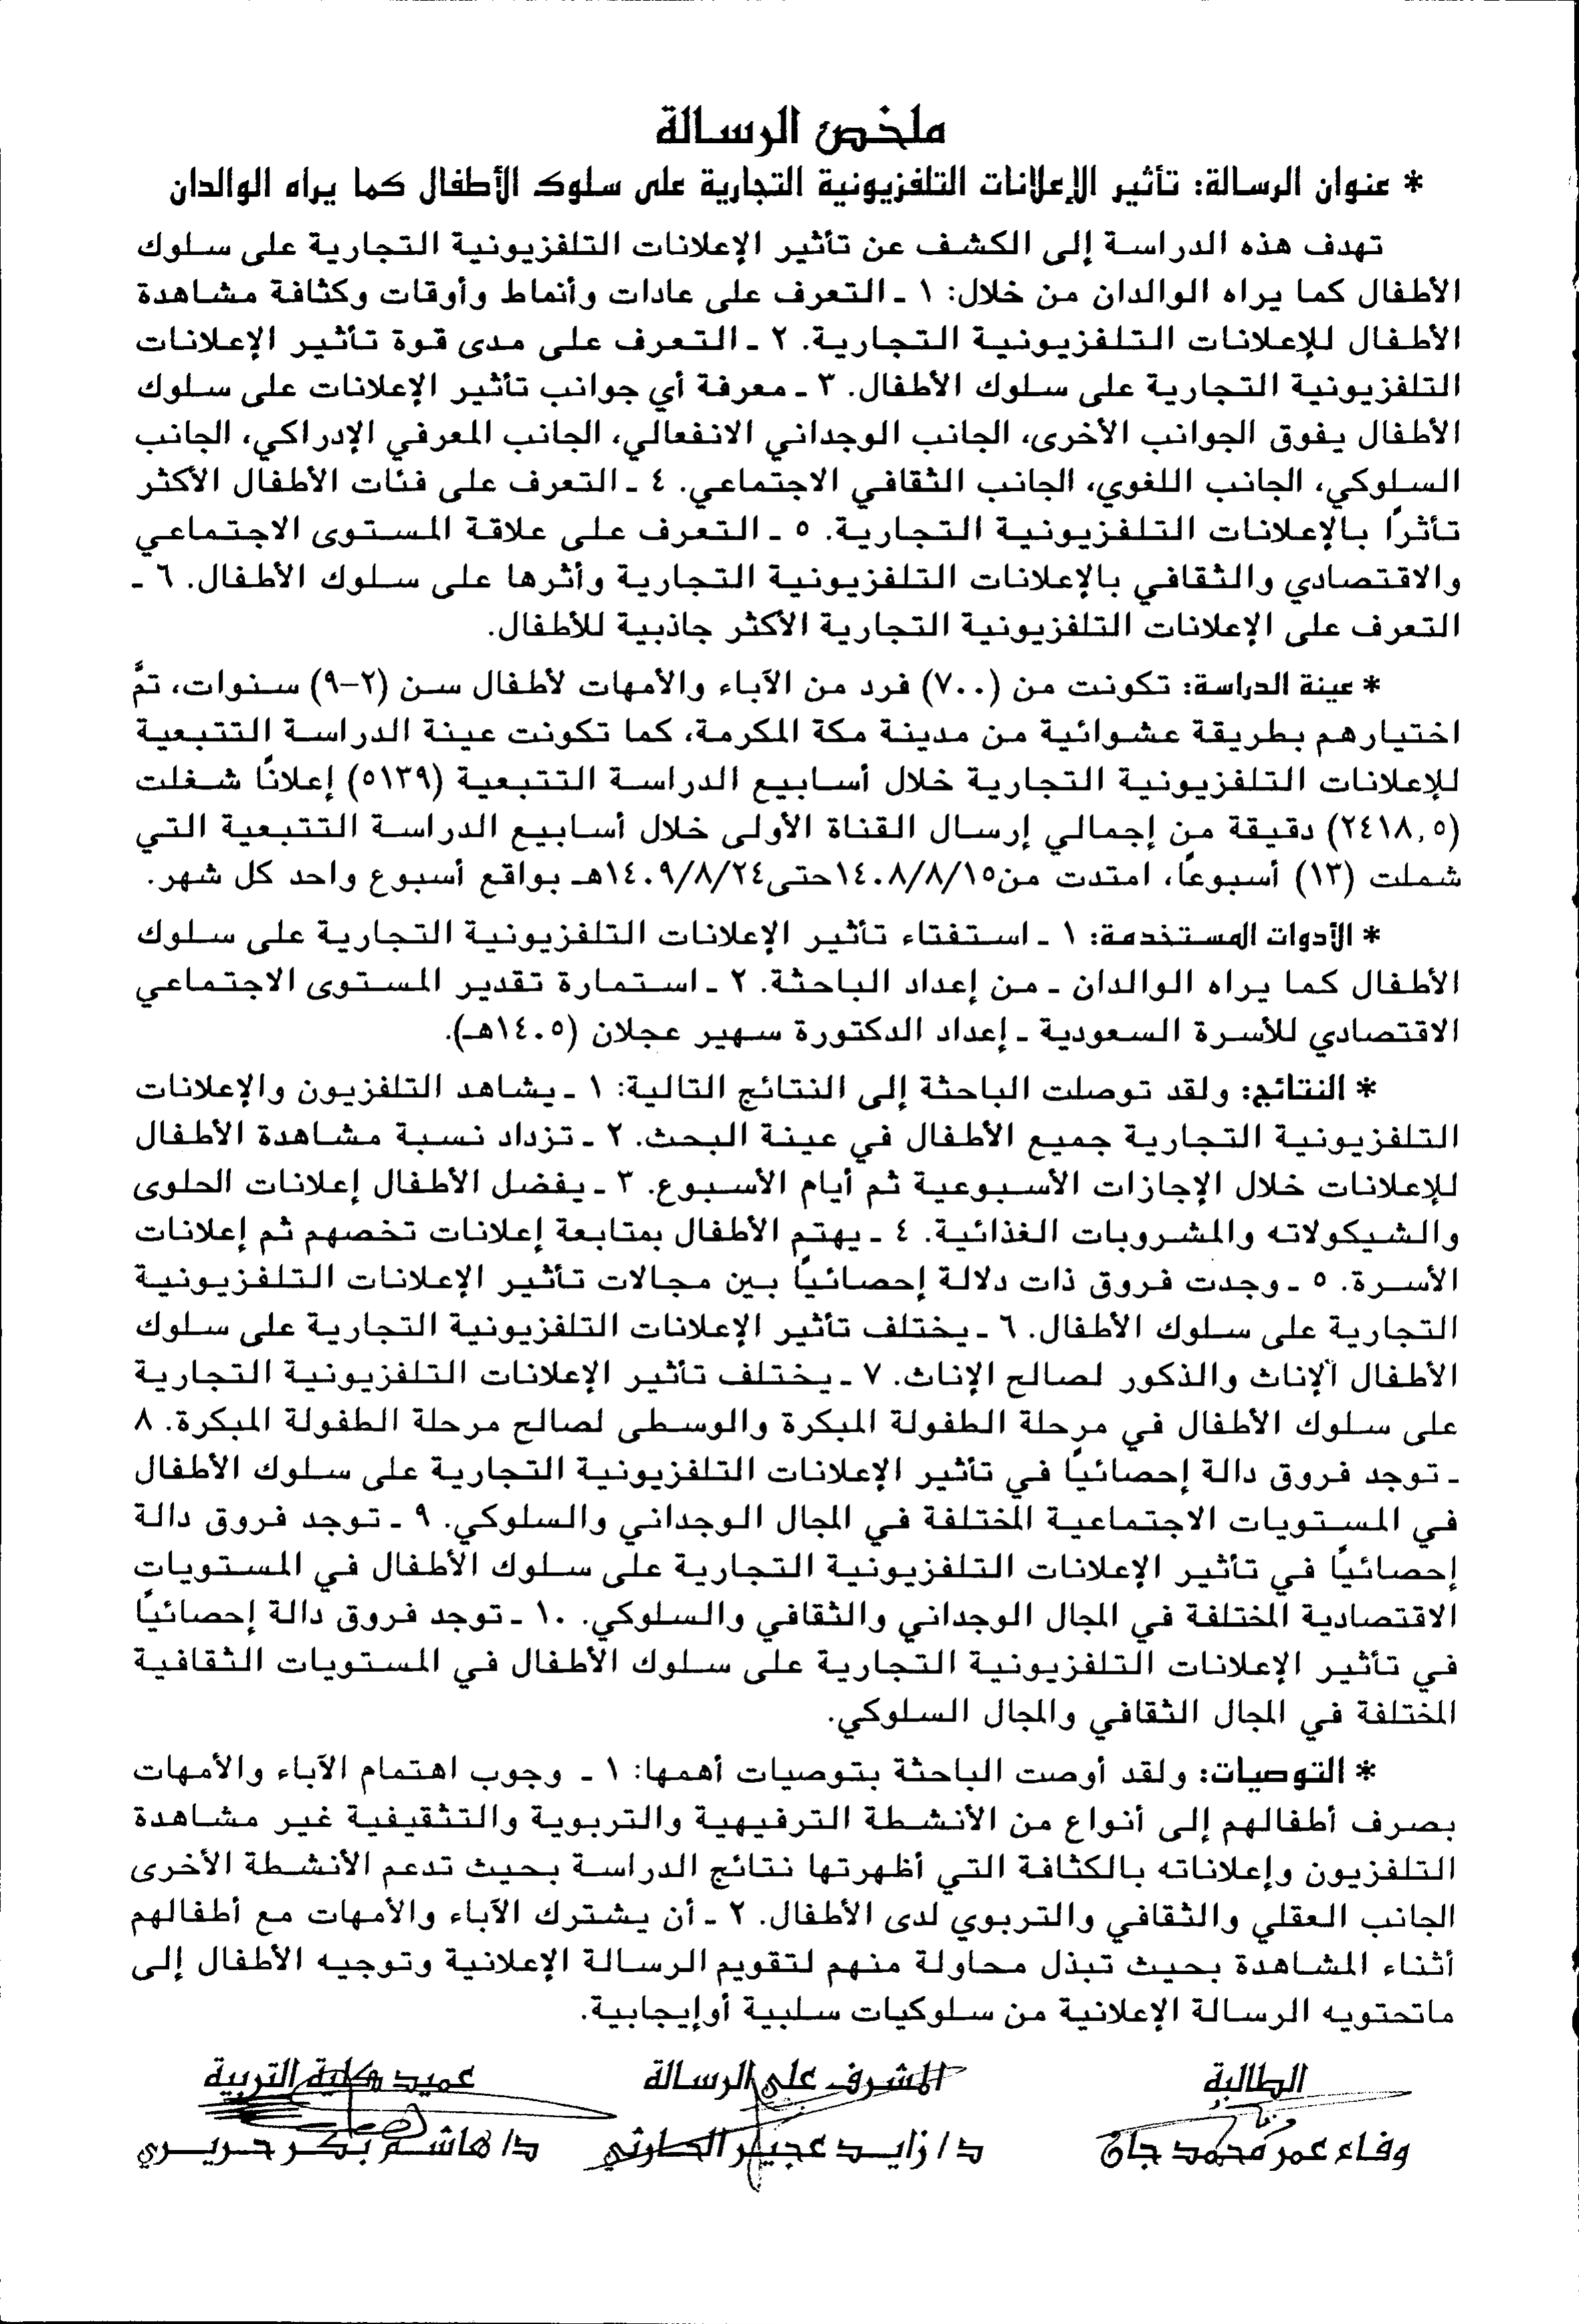 ملخص الرسالة
* عنوان الرسالة: تأثير الإعلانات التلفزيونية التجارية على سلوك الأطفال كما يراه الوالدان
تهدف هذه الدراسة إلى الكشف عن تأثير الإعلانات التلفزيونية التجارية على سلوك
الأطفال كما يراه الوالدان من خلال: ١ ـ التعرف على عادات وأنماط وأوقات وكثافة مشاهدة
الأطفال للإعلانات التلفزيونية التجارية. ٢ ـ التعرف على مدى قوة تأثير الإعلانات
التلفزيونية التجارية على سلوك الأطفال. ٣ ـ معرفة أي جوانب تأثير الإعلانات على سلوك
الأطفال يفوق الجوانب الأخرى، الجانب الوجداني الانفعالي، الجانب المعرفي الإدراكي، الجانب
السلوكي، الجانب اللغوي، الجانب الثقافي الاجتماعي. ٤ ـ التعرف على فئات الأطفال الأكثر
تأثرًا بالإعلانات التلفزيونية التجارية. ٥ ـ التعرف على علاقة المستوى الاجتماعي
والاقتصادي والثقافي بالإعلانات التلفزيونية التجارية وأثرها على سلوك الأطفال. ٦ ـ
التعرف على الإعلانات التلفزيونية التجارية الأكثر جاذبية للأطفال.
* عينة الدراسة: تكونت من (٧٠٠) فرد من الآباء والأمهات لأطفال سن (٢–٩) سنوات، تمَّ
اختيارهم بطريقة عشوائية من مدينة مكة المكرمة، كما تكونت عينة الدراسة التتبعية
للإعلانات التلفزيونية التجارية خلال أسابيع الدراسة التتبعية (٥١٣٩) إعلانًا شغلت
(٢٤١٨,٥) دقيقة من إجمالي إرسال القناة الأولى خلال أسابيع الدراسة التتبعية التي
شملت (١٣) أسبوعًا، امتدت من١٤٠٨/٨/١٥حتى١٤٠٩/٨/٢٤هـ بواقع أسبوع واحد كل شهر.
* الأدوات المستخدمة: ١ ـ استفتاء تأثير الإعلانات التلفزيونية التجارية على سلوك
الأطفال كما يراه الوالدان ـ من إعداد الباحثة. ٢ ـ استمارة تقدير المستوى الاجتماعي
الاقتصادي للأسرة السعودية ـ إعداد الدكتورة سهير عجلان (١٤٠٥هـ).
* النتائج: ولقد توصلت الباحثة إلى النتائج التالية: ١ ـ يشاهد التلفزيون والإعلانات
التلفزيونية التجارية جميع الأطفال في عينة البحث. ٢ ـ تزداد نسبة مشاهدة الأطفال
للإعلانات خلال الإجازات الأسبوعية ثم أيام الأسبوع. ٣ ـ يفضل الأطفال إعلانات الحلوى
والشيكولاته والمشروبات الغذائية. ٤ ـ يهتم الأطفال بمتابعة إعلانات تخصهم ثم إعلانات
الأسرة. ٥ ـ وجدت فروق ذات دلالة إحصائيًا بين مجالات تأثير الإعلانات التلفزيونية
التجارية على سلوك الأطفال. ٦ ـ يختلف تأثير الإعلانات التلفزيونية التجارية على سلوك
الأطفال الإناث والذكور لصالح الإناث. ٧ ـ يختلف تأثير الإعلانات التلفزيونية التجارية
على سلوك الأطفال في مرحلة الطفولة المبكرة والوسطى لصالح مرحلة الطفولة المبكرة. ٨
ـ توجد فروق دالة إحصائيًا في تأثير الإعلانات التلفزيونية التجارية على سلوك الأطفال
في المستويات الاجتماعية المختلفة في المجال الوجداني والسلوكي. ٩ ـ توجد فروق دالة
إحصائيًا في تأثير الإعلانات التلفزيونية التجارية على سلوك الأطفال في المستويات
الاقتصادية المختلفة في المجال الوجداني والثقافي والسلوكي. ١٠ ـ توجد فروق دالة إحصائيًا
في تأثير الإعلانات التلفزيونية التجارية على سلوك الأطفال في المستويات الثقافية
المختلفة في المجال الثقافي والمجال السلوكي.
* التوصيات: ولقد أوصت الباحثة بتوصيات أهمها: ١ ـ وجوب اهتمام الآباء والأمهات
بصرف أطفالهم إلى أنواع من الأنشطة الترفيهية والتربوية والتثقيفية غير مشاهدة
التلفزيون وإعلاناته بالكثافة التي أظهرتها نتائج الدراسة بحيث تدعم الأنشطة الأخرى
الجانب العقلي والثقافي والتربوي لدى الأطفال. ٢ ـ أن يشترك الآباء والأمهات مع أطفالهم
أثناء المشاهدة بحيث تبذل محاولة منهم لتقويم الرسالة الإعلانية وتوجيه الأطفال إلى
ماتحتويه الرسالة الإعلانية من سلوكيات سلبية أوإيجابية.
الطالبة المشرف على الرسالة عميد كلية التربية
وفاء عمر محمد جان د/ زايد عجير الحارثي د/ هاشم بكر حريري